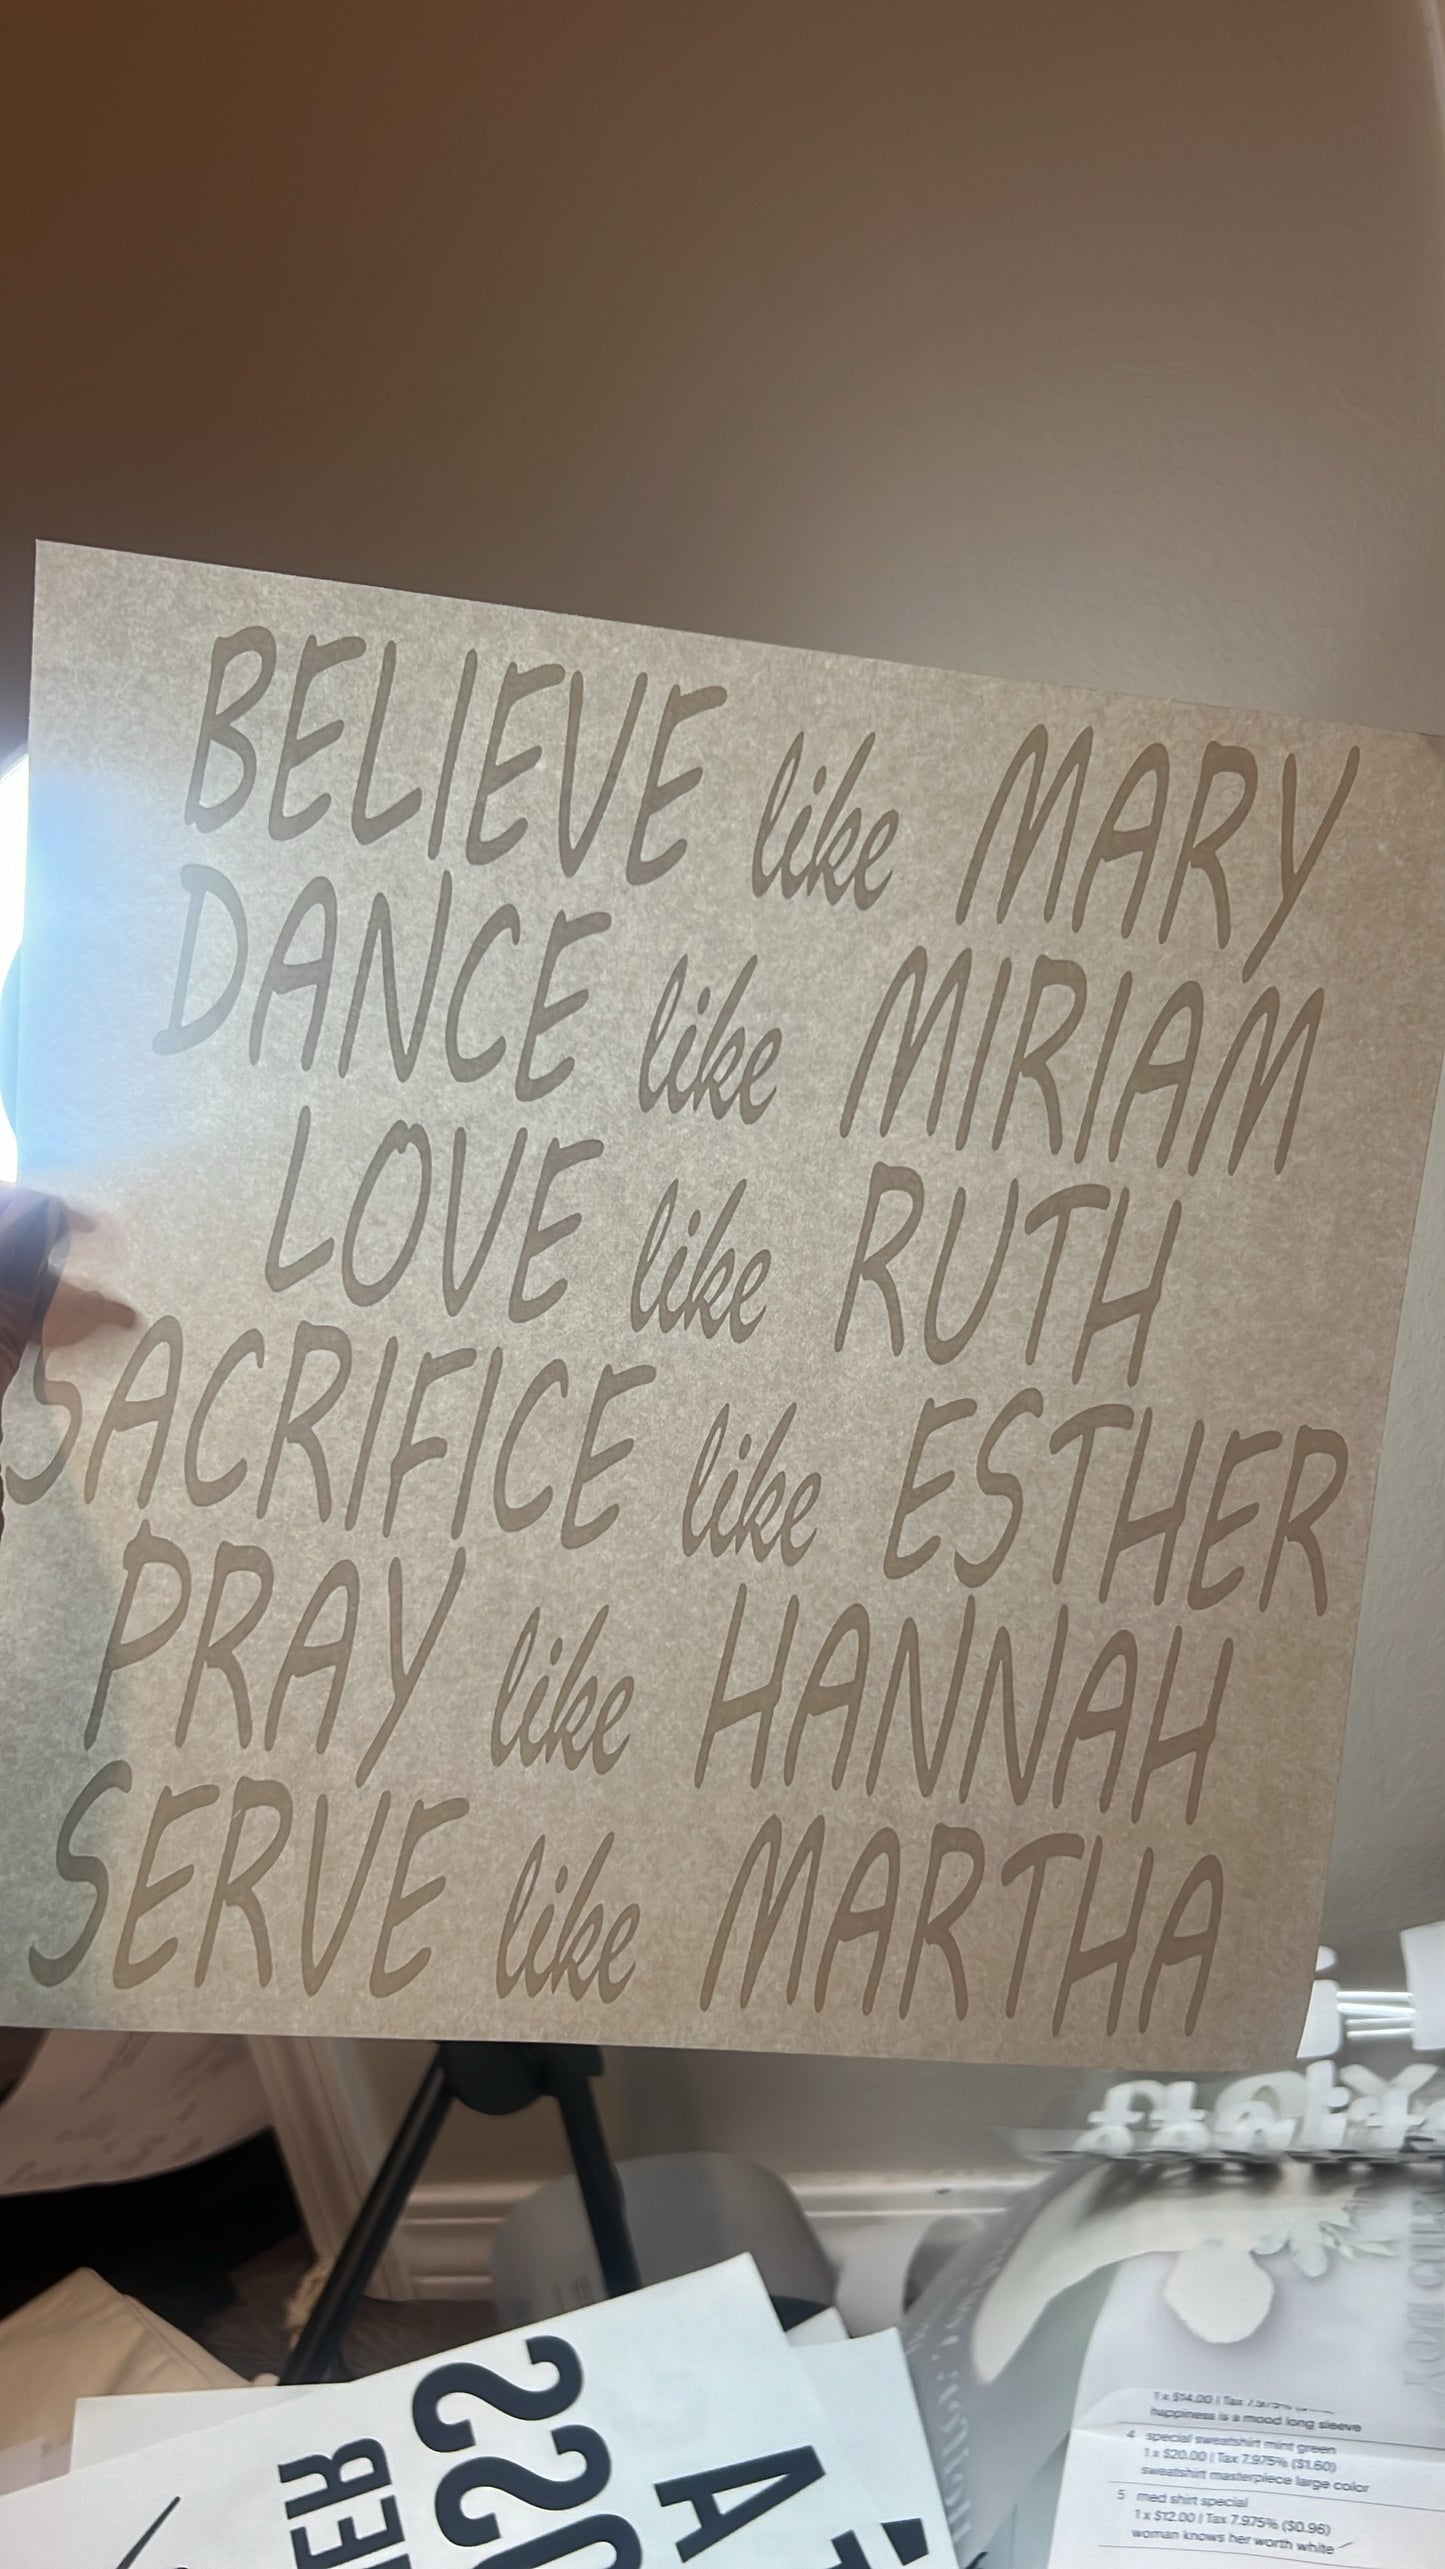 BELIEVE like MARY
DANCE like MIRIAM
LOVE like RUTH
SACRIFICE like ESTHER
PRAY like HANNAH
SERVE like MARTHA
1 x $14.00 | Tax
happiness is a mood long sleeve
4 special sweatshirt mint green
1 x $20.00 | Tax 7.975% ($1.60)
sweatshirt masterpiece large color
5 med shirt special
1 x $12.00 | Tax 7.975% ($0.96)
woman knows her worth white